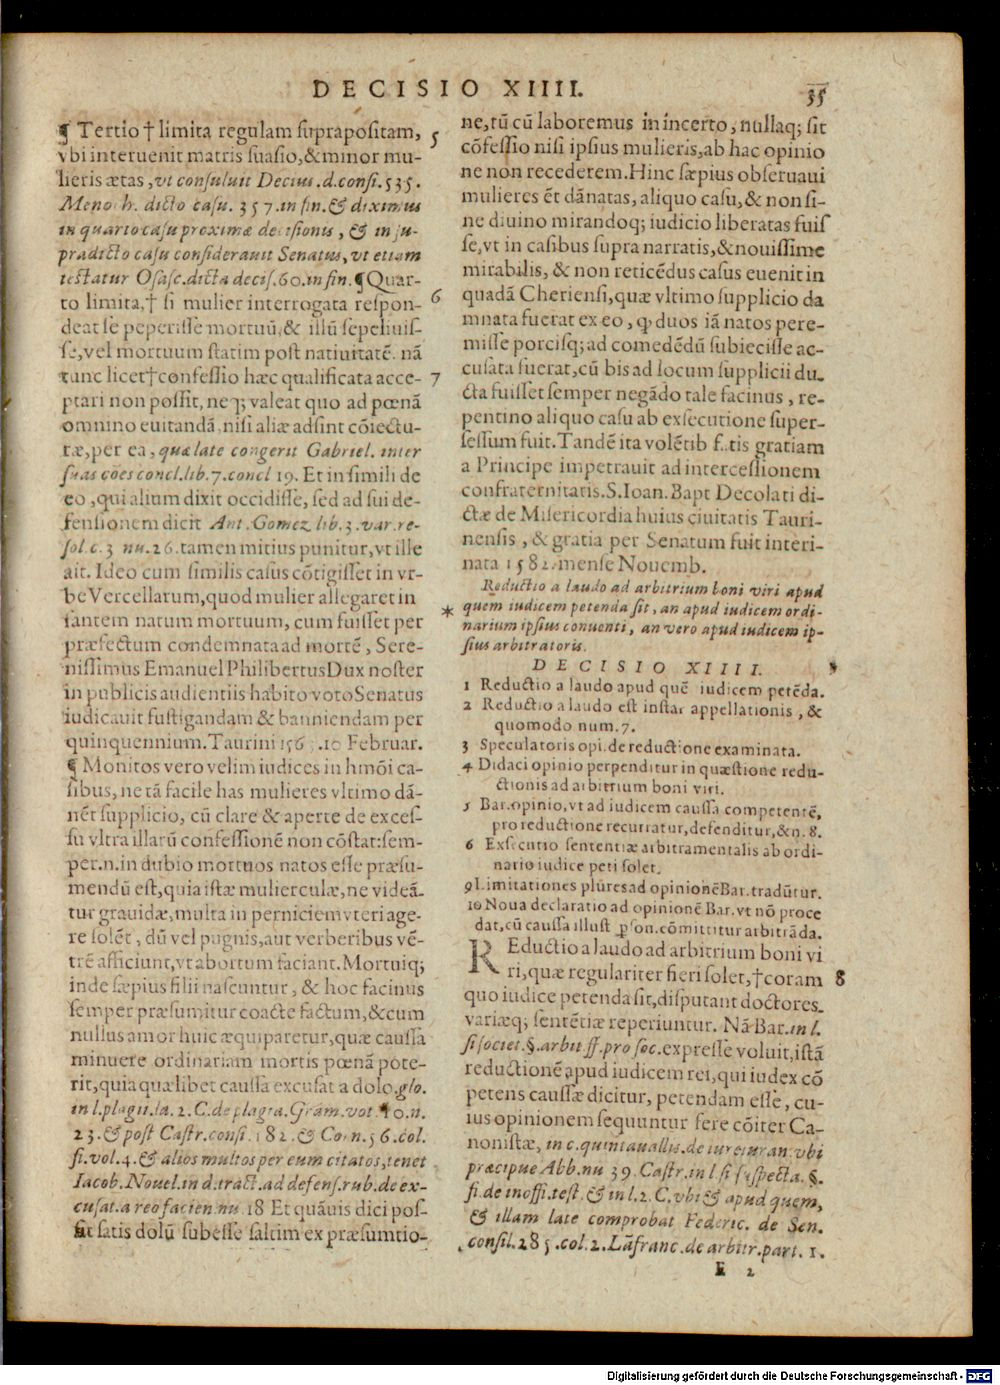 DECISIO XIIII. 35
¶ Tertio † limita regulam suprapositam, 5
vbi interuenit matris suasio, & minor mu-
lieris ætas, vt consuluit Decius. d. consi. 535.
Meno h. dicto casu. 357. in fin. & diximus
in quarto casu proximæ decisionis, & in su-
pradicto casu considerauit Senatus, vt etiam
testatur Osasc. dicta decis. 60. in fin. ¶ Quar-
to limita, † si mulier interrogata respon- 6
deat se peperisse mortuū, & illū sepeliuis-
se, vel mortuum statim post natiuitatē. nā
tunc licet † confessio hæc qualificata acce- 7
ptari non possit, neq; valeat quo ad pœnā
omnino euitandā, nisi aliæ adsint cōiectu-
ræ, per ea, quæ late congerit Gabriel. inter
suas cōes concl. lib. 7. concl 19. Et in simili de
eo, qui alium dixit occidisse, sed ad sui de-
fensionem dicit Ant. Gomez lib. 3. var. re-
sol. c. 3 nu. 26. tamen mitius punitur, vt ille
ait. Ideo cum similis casus cōtigisset in vr-
be Vercellarum, quod mulier allegaret in
fantem natum mortuum, cum fuisset per
præfectum condemnata ad mortē, Sere-
nissimus Emanuel Philibertus Dux noster
in publicis audientiis habito voto Senatus
iudicauit fustigandam & banniendam per
quinquennium. Taurini 156 . 10 Februar.
¶ Monitos vero velim iudices in hmōi ca-
sibus, ne tā facile has mulieres vltimo dā-
nēt supplicio, cū clare & aperte de exces-
su vltra illarū confessionē non cōstat: sem-
per. n. in dubio mortuos natos esse præsu-
mendū est, quia istæ mulierculæ, ne videā-
tur grauidæ, multa in perniciem vteri age-
re solēt, dū vel pugnis, aut verberibus vē-
trē afficiunt, vt abortum faciant. Mortuiq;
inde sæpius filii nascuntur, & hoc facinus
semper præsumitur coacte factum, & cum
nullus amor huic æquiparetur, quæ caussa
minuere ordinariam mortis pœnā pote-
rit, quia quælibet caussa excusat a dolo. glo.
in l. plagii. la. 2. C. de plagia. Gram. vot. 10. n.
23. & post Castr. consi. 182. & Corn. 56. col.
fi. vol. 4. & alios multos per eum citatos, tenet
Iacob. Nouel. in d. tract. ad defens. rub. de ex-
cusat. a reo facien. nu. 18 Et quāuis dici pos-
sit satis dolū subesse saltim ex præsumtio-
ne, tū cū laboremus in incerto, nullaq; sit
cōfessio nisi ipsius mulieris, ab hac opinio
ne non recederem. Hinc sæpius obseruaui
mulieres ēt dānatas, aliquo casu, & non si-
ne diuino mirandoq; iudicio liberatas fuis
se, vt in casibus supra narratis, & nouissime
mirabilis, & non reticēdus casus euenit in
quadā Cheriensi, quæ vltimo supplicio da
mnata fuerat ex eo, q̧ duos iā natos pere-
misse porcisq; ad comedēdū subiecisse ac-
cusata fuerat, cū bis ad locum supplicii du-
cta fuisset semper negādo tale facinus, re-
pentino aliquo casu ab exsecutione super-
sessum fuit. Tandē ita volētib f..tis gratiam
a Principe impetrauit ad intercessionem
confraternitatis. S. Ioan. Bapt Decolati di-
ctæ de Misericordia huius ciuitatis Tauri-
nensis, & gratia per Senatum fuit interi-
nata 1582. mense Nouemb.
Reductio a laudo ad arbitrium boni viri apud
* quem iudicem petenda sit, an apud iudicem ordi-
narium ipsius conuenti, an vero apud iudicem ip-
sius arbitratoris.
DECISIO XIIII.
1 Reductio a laudo apud quē iudicem petēda.
2 Reductio a laudo est instar appellationis, &
quomodo num. 7.
3 Speculatoris opi. de reductione examinata.
4 Didaci opinio perpenditur in quæstione redu-
ctionis ad arbitrium boni viri.
5 Bar. opinio, vt ad iudicem caussa competentē,
pro reductione recurratur, defenditur, & n. 8.
6 Exsecutio sententiæ arbitramentalis ab ordi-
nario iudice peti solet.
9 Limitationes plures ad opinionē Bar. tradūtur.
10 Noua declaratio ad opinionē Bar. vt nō proce
dat, cū caussa illust ꝑson. cōmittitur arbitrāda.
REductio a laudo ad arbitrium boni vi
ri, quæ regulariter fieri solet, † coram 8
quo iudice petenda sit, disputant doctores.
variæq; sentētiæ reperiuntur. Nā Bar. in l.
si societ. §. arbit ff. pro soc. expresse voluit, istā
reductionē apud iudicem rei, qui iudex cō
petens caussæ dicitur, petendam esse, cu-
ius opinionem sequuntur fere cōiter Ca-
nonistæ, in c. quintauallis. de iureiuran. vbi
præcipue Abb. nu 39. Castr. in l. si suspecta. §.
fi. de inoffi. test. & in l. 2. C. vbi & apud quem,
& illam late comprobat Federic. de Sen.
consil. 285. col. 2. Lāfranc. de arbitr. part. 1.
E 2
Digitalisierung gefördert durch die Deutsche Forschungsgemeinschaft - DFG